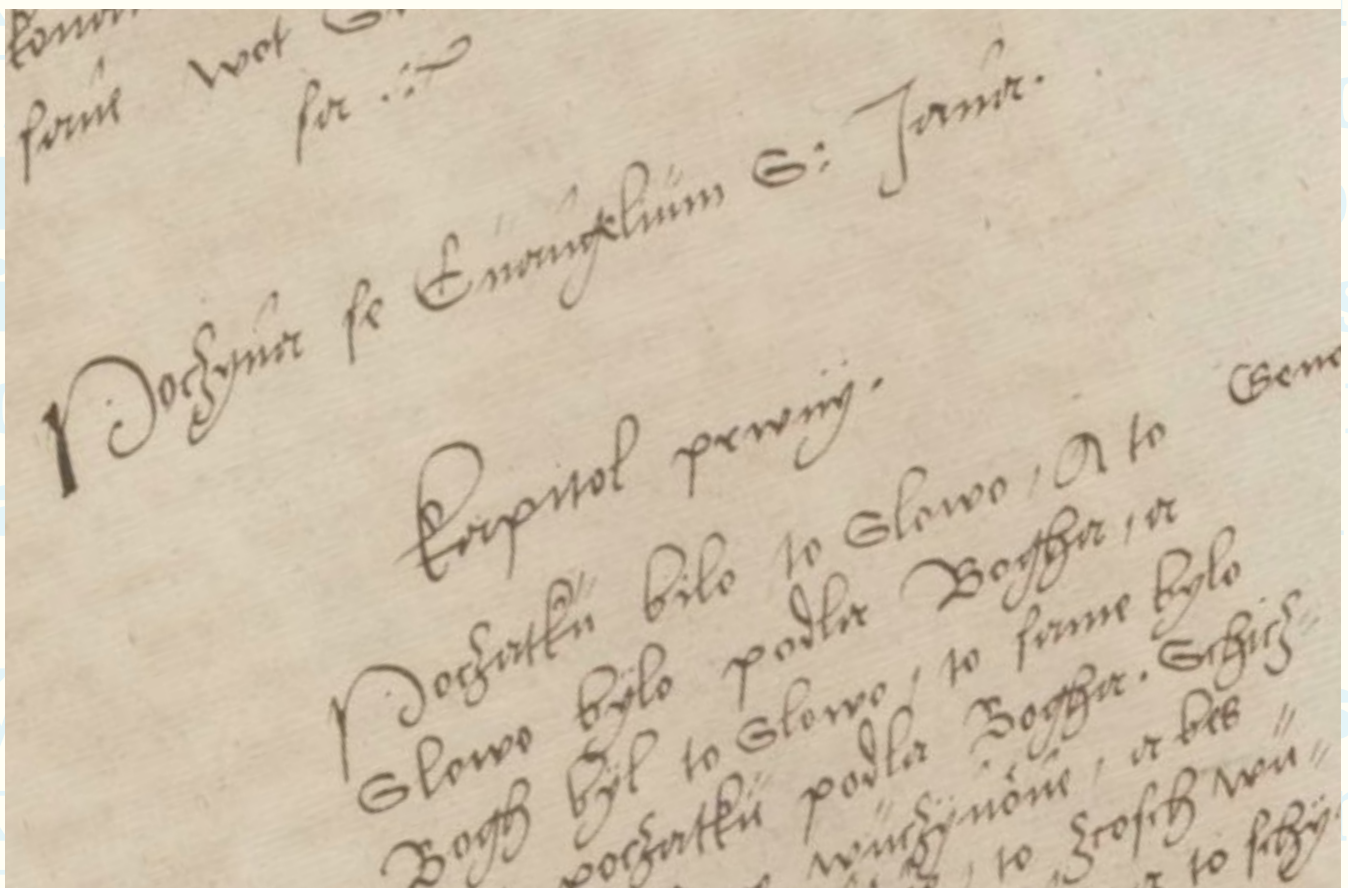 same wot
sa
Poczyna se Euangelium S: Jana.
Kapitol prwnÿ.
Gene
Poczatku bilo to Slowo, A to
Slowo bÿlo podla Boghа, a
Bogh bÿl to Slowo, to same bylo
poczatku podla Bogha. Schicz"
wuczÿnóne, a bes
to zcosch wu"
to schÿ